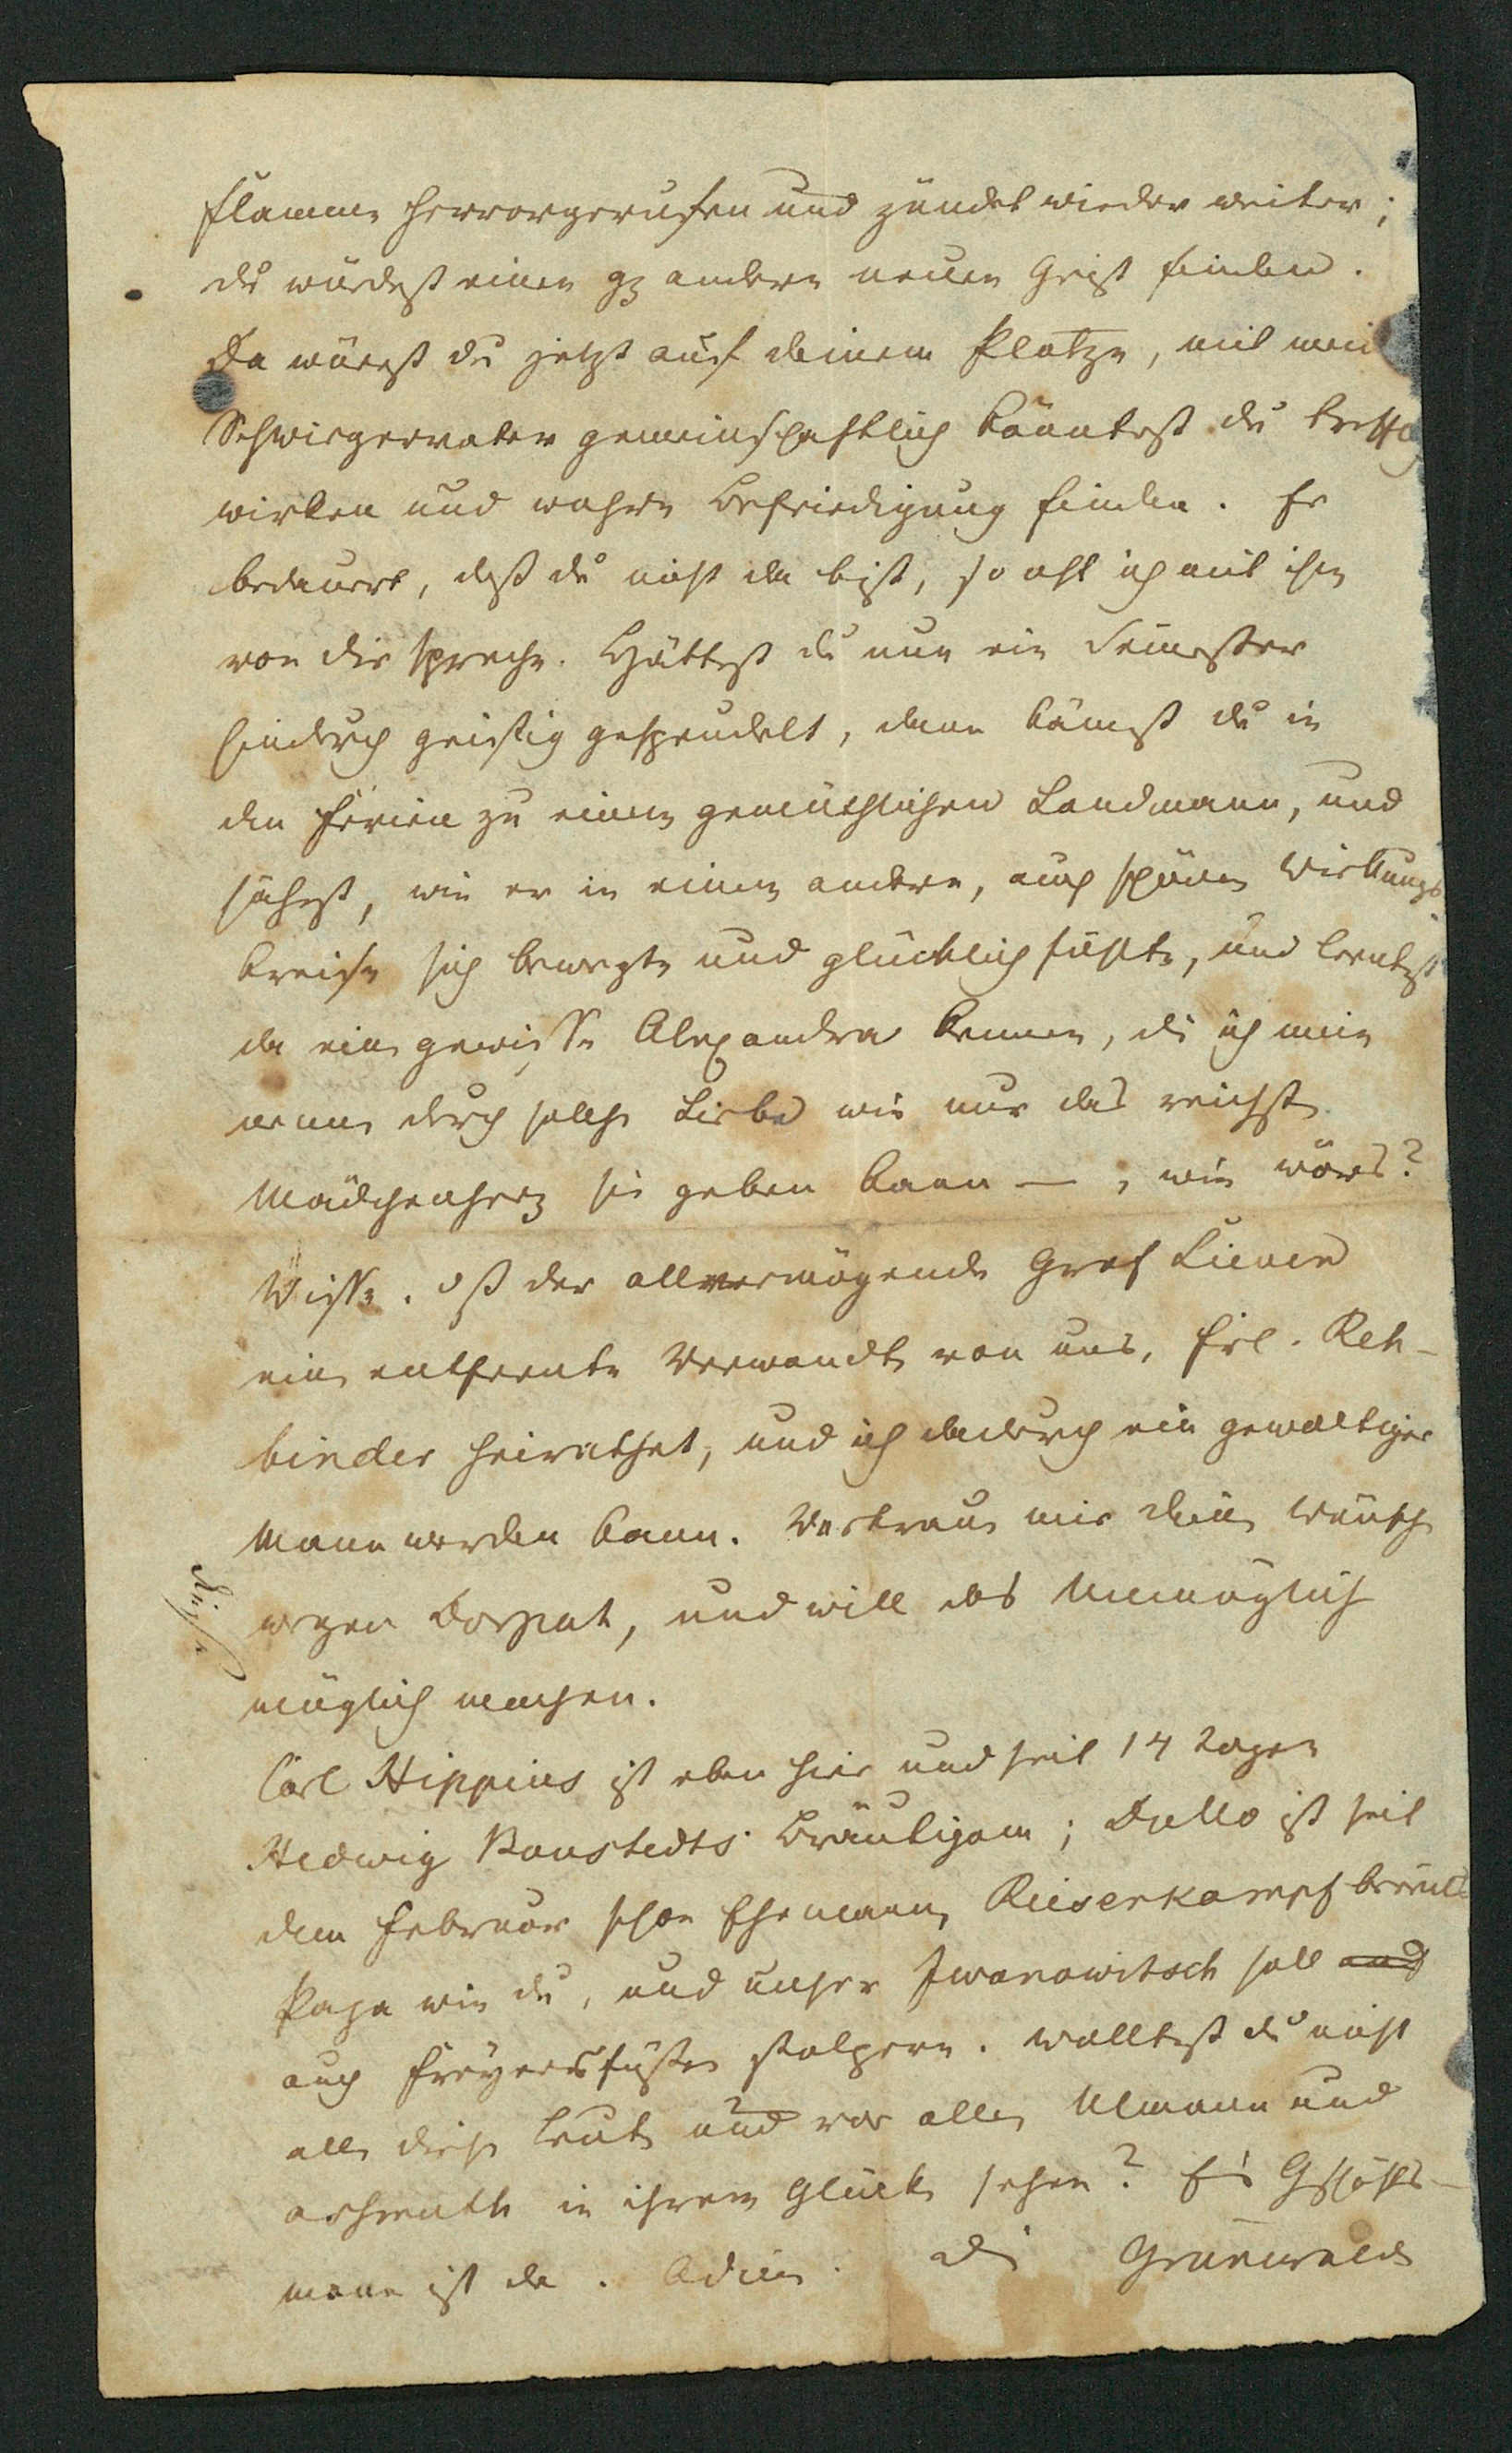 Flamme hervorgerufen und zündet wieder weiter;
du würdest einen gz andern neuen Geist finden.
Da wärest du jetzt auf deinem Platze, mit mei
Schwiegervater gemeinschaftlich könntest du
wirken und wahre Befriedigung finden. Er
bedauert, daß du nicht da bist, so oft ich mit ihm
von dir spreche. Hättest du nun ein Semester
hindurch geistig gesprudelt, dann kämest du in
den Ferien zu einem gemüthlichen Landmann, und
sähest, wie er in einem andern, auch schönen Wirkungs
kreise sich bewegte und glücklich fühlte, und lerntest
da eine gewisse Alexandra kennen, die ich mein
nenne durch solche Liebe wie nur das reichste
Mädchenherz sie geben kann — , wie wärs?
Wisse, daß der allvermögende Graf Lieven
eine entfernte Verwandte von uns, Frl. Reh-
binder heirathet, und ich dadurch ein gewaltiger
Mann werden kann. Vertraue mir deine Wünsche
wegen Dorpat, und will das Unmögliche
möglich machen.
Carl Hippius ist eben hier und seit 14 Tagen
Hedwig Bräutigam; Dullo ist seit
dem Februar schon Ehemann, Riesenkampf
Papa wie du, und unser Iwanowitsch soll und
auf Freyersfüßen stolpern. Wolltest du nicht
alle diese Leute und vor allen Ulmann und
in ihrem Glücke sehen? Ein Geschäfts-
mann ist da. Adieu. Grünwaldt